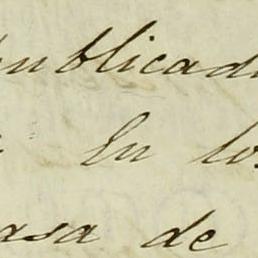 publicad
En los
asa de